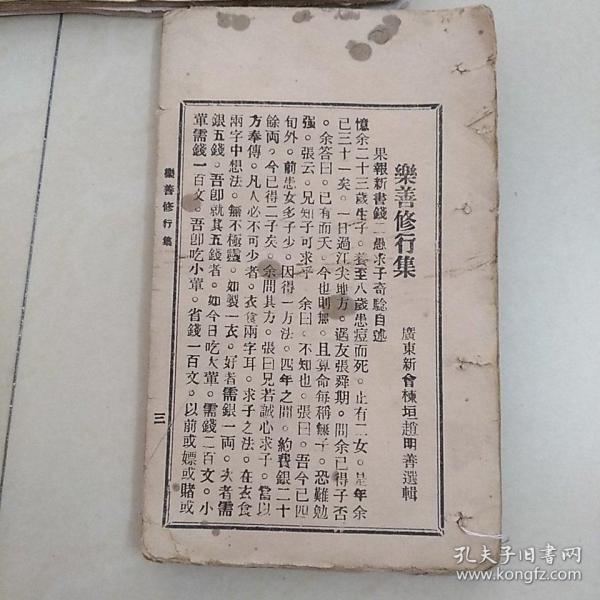 樂善修行集
廣東新會棟垣趙明善選輯
果報新書錢一愚求子奇騐自述
憶余二十三歲生子。養至八歲患痘而死。止有二女。是年余
已三十一矣。一日過江尖地方。遇友張舜期。問余已得子否
。余答曰。已有而夭。今也則無。且算命每稱無子。恐難勉
強。張云。兄知子可求乎。余曰。不知也。張曰。吾今已四
旬外。前患女多子少。因得一方法。四年之間。約費銀二十
餘両。今已得二子矣。余問其方。張曰兄若誠心求子。當以
方奉傳。凡人必不可少者。衣食兩字耳。求子之法。在衣食
兩字中想法。無不極靈。如製一衣。好者需銀一両。次者需
銀五錢。吾卽就其五錢者。如今日吃大葷。需錢二百文。小
葷需錢一百文。吾卽吃小葷。省錢一百文。以前或嫖或賭或
樂善修行集
三
孔夫子旧書网
www.kongfz.com